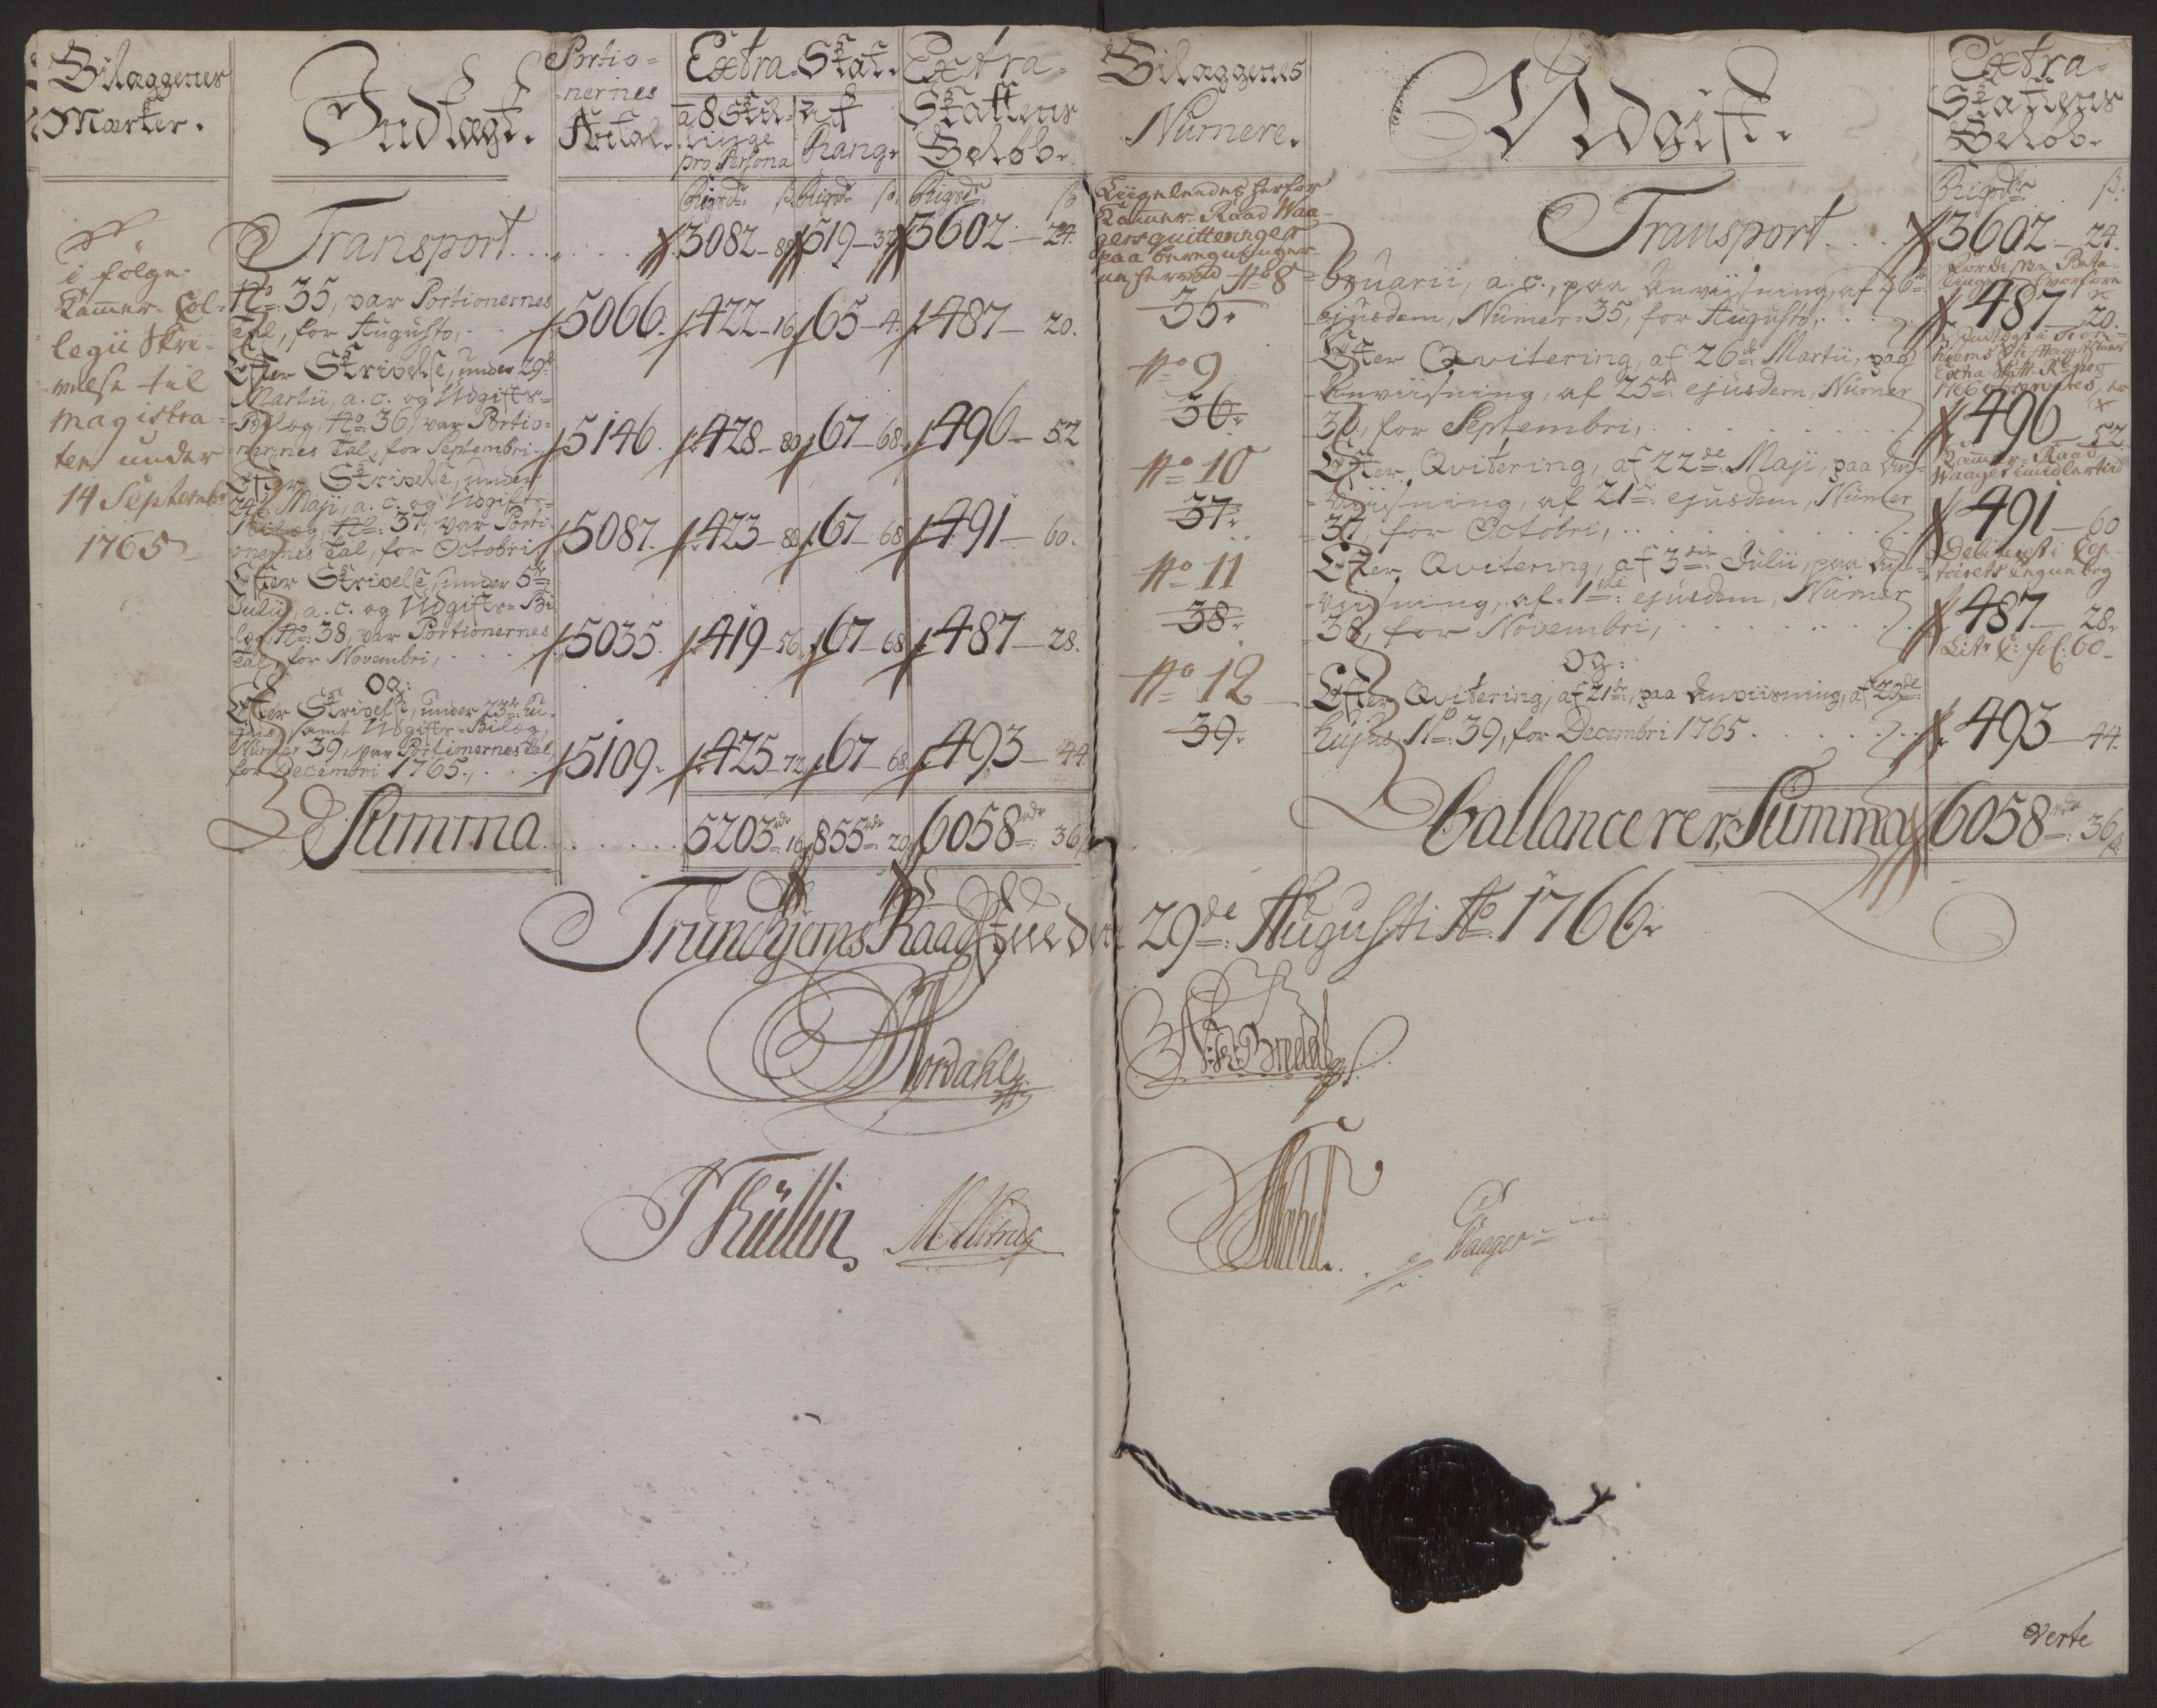 Bilaggenes
Mærker.
Indtægt.
Portio-
nernes
Antal.
Extra-Skat.
a 8 Skil-
linge
pro Persona
af
Rang
Extra-
Skattens
Beløb.
Rigsdr. ß. Rigsdr. ß. Rigsdr. ß
Transport 3082 519 3602 24.
i følge
Kammer-Col-
legii Skri-
velse til
Magistra-
ten under
14 Septembr
1765
No. 35, var Portionernes
Tal, for Augusto, 5066. 422 16 65 4. 487 20.
Efter Skrivelse, under 29de
Martii, a. c. og Udgifts-
Bilag, No. 36, var Portio-
nernes Tal, for Septembri 5146. 428 80 67 68. 496 52
Efter Skrivelse, under
Maji, a. c. og Udgifts-
Bilag, No. 37, var Porti-
onernes Tal, for Octobri 5087. 423 88 67 68 491 60.
Efter Skrivelse, under 5te
Julii, a. c. og Udgifts-Bi
lag, No. 38, var Portionernes
Tal, for Novembri, 5035. 419 56. 67 68 487 28.
Og:
Efter Skrivelse, under 23de hu-
jus, samt Udgifts-Bilag,
Numer 39, var Portionernes Tal,
for Decembri 1765., 5109. 425 72 67 68. 493 44.
Summa 5203rdr 16 855rdr 20 6058rdr 36
Trundhjems Raadstue den 29de Augusti Ao. 1766.
Nordahl
J Küllin
Bilaggenes
Numere.
Udgift.
Extra-
Skattens
Beløb.
Rigsdr ß.
Transport 3602 24.
Liigeleedes herfor
Kammer-Raad Waa-
gers quitteringer
paa
No 8
35.
bruarii, a. c., paa Anviisning, af 26de
ejusdem, Numer 35, for Augusto, 487 20.
No 9
36.
Efter Qvitering, af 26de Martii, paa
Anviisning, af 25de ejusdem, Numer
36, for Septembri, 496 52
No 10
37.
Efter Qvitering, af 22de Maji, paa An-
viisning, af 21de ejusdem, Numer
37, for Octobri, 491 60
No 11
38.
Efter Qvitering, af 3die Julii, paa An-
viisning, af 1ste ejusdem, Numer
38, for Novembri, 487 28.
Kammer-Raad
Waager imidlertid
Litr fol: 60
No 12
39.
Og:
Efter Qvitering, af 21de, paa Anviisning, af 20de
hujus No. 39, for Decembri 1765. 493 44.
Ballancerer, Summa 6058rdr 36
Waager
Verte